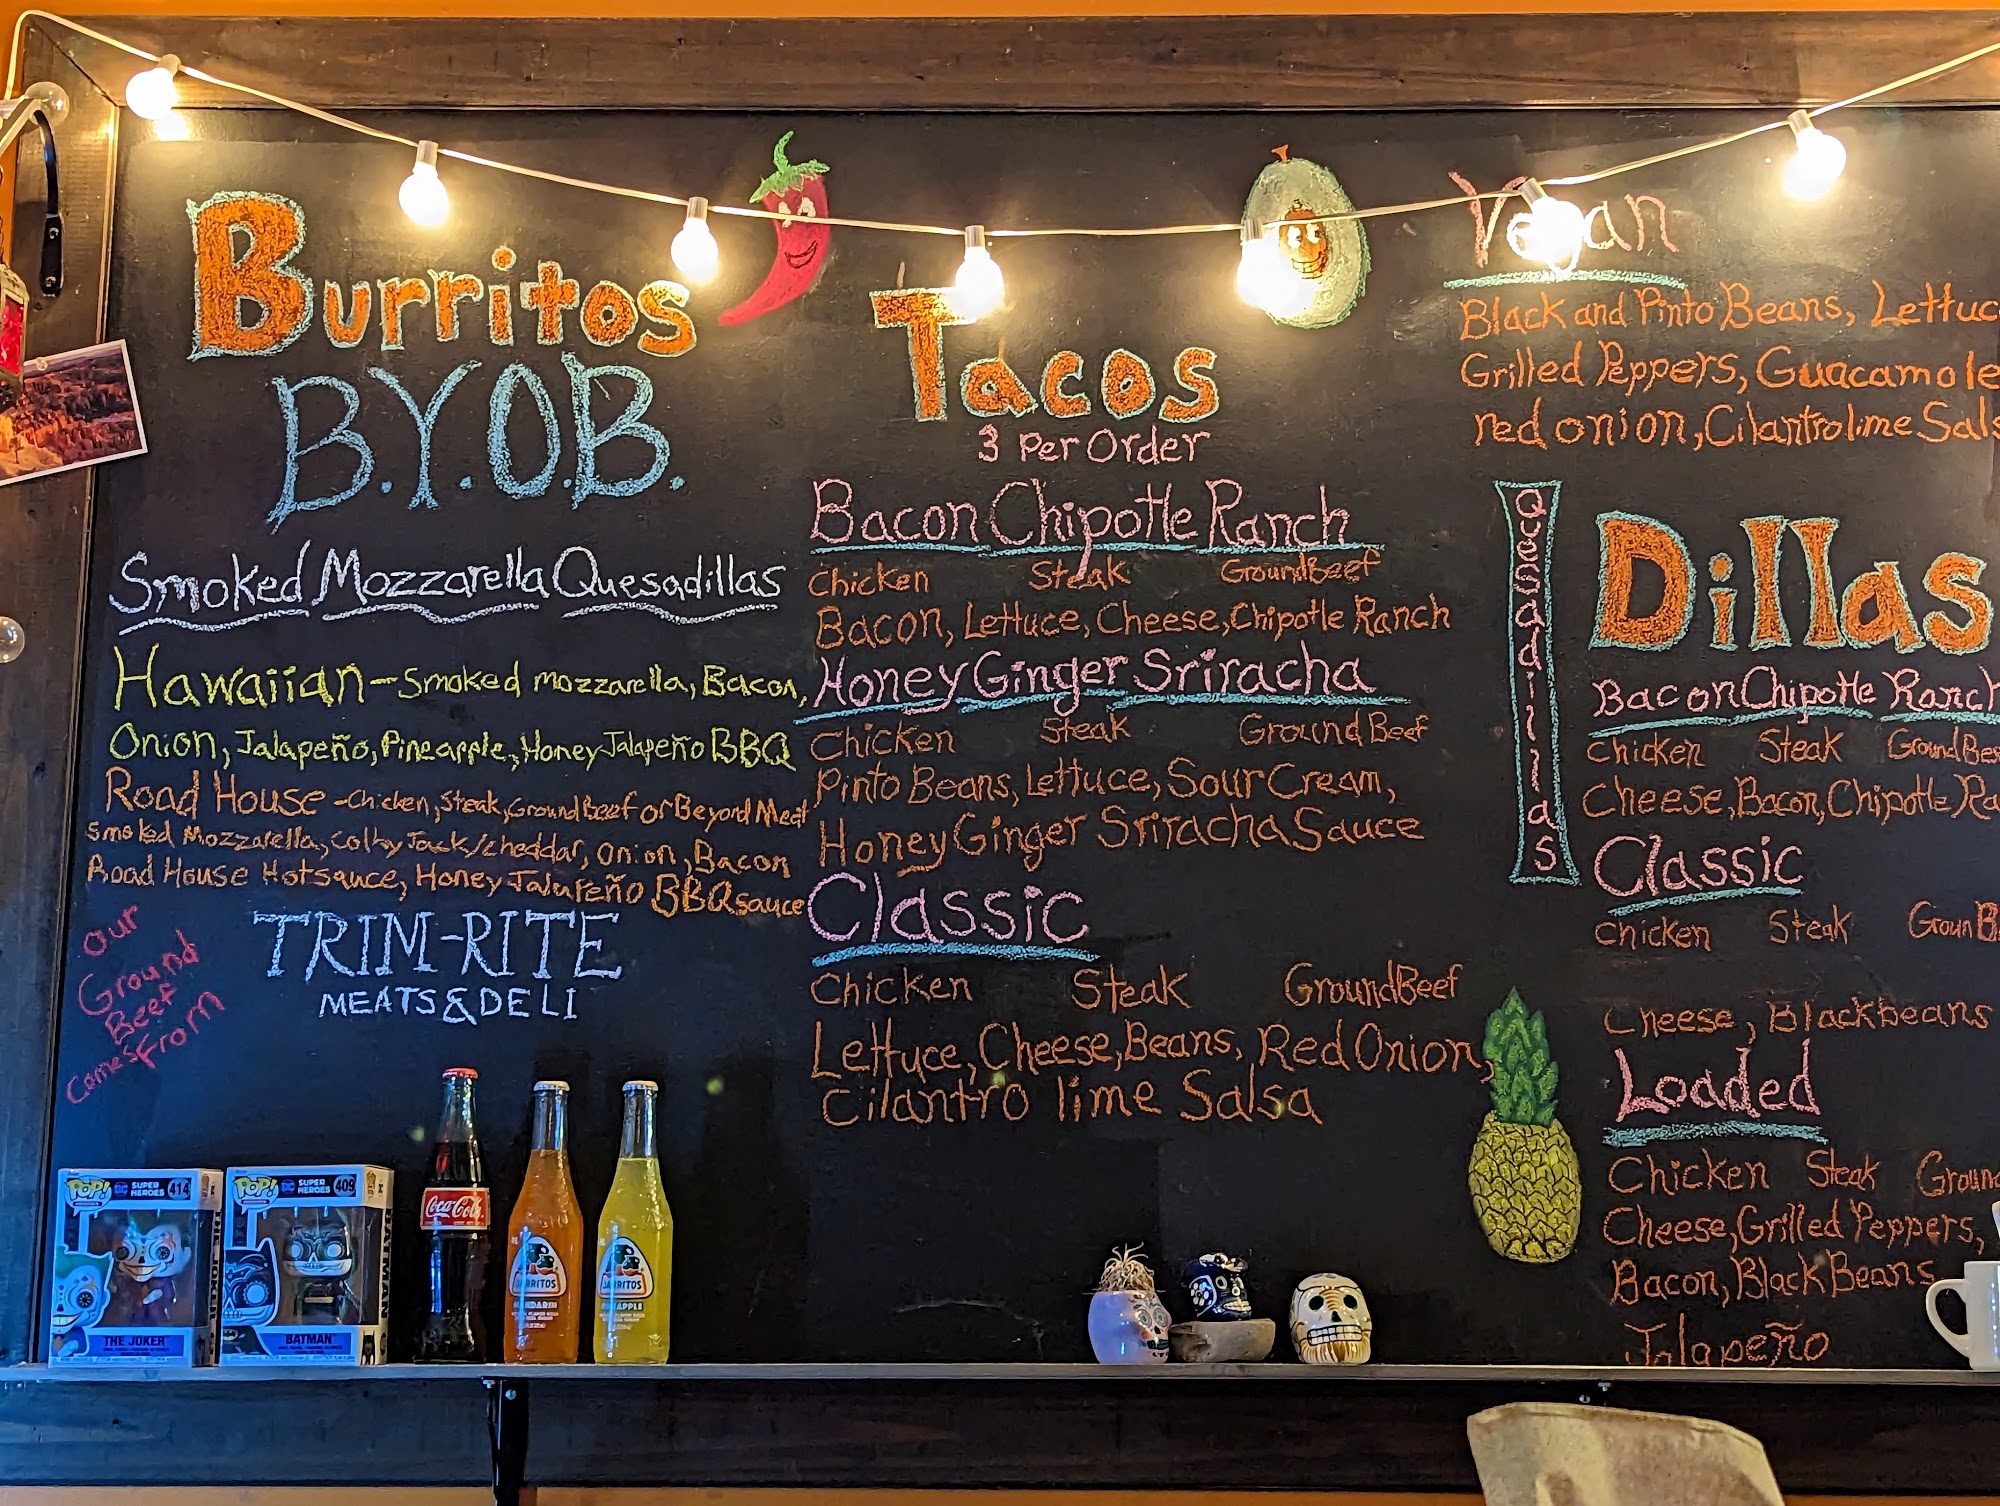 Burritos
B.Y.O.B.
Smoked Mozzarella Quesadillas
Hawaiian - Smoked mozzarella, Bacon,
Onion, Jalapeño, Pineapple, Honey Jalapeño BBQ
Road House - Chicken, Steak, Ground Beef or Beyond Meat
Smoked Mozzarella, Colby Jack/cheddar, onion, Bacon
Road House Hotsauce, Honey Jalupeño BBQ sauce
Our
Ground
Beef
Comes From
TRIM-RITE
MEATS & DELI
Tacos
3 Per Order
Bacon Chipotle Ranch
Chicken Steak Ground Beef
Bacon, Lettuce, Cheese, Chipotle Ranch
Honey Ginger Sriracha
Chicken Steak Ground Beef
Pinto Beans, Lettuce, Sour Cream,
Honey Ginger Sriracha Sauce
Classic
Chicken Steak Ground Beef
Lettuce, Cheese, Beans, Red Onion,
Cilantro lime Salsa
Black and Pinto Beans, Lettuc
Grilled Peppers, Guacamole
red onion, Cilantro lime Sals
Quesadillas
Dillas
Bacon Chipotle Ranch
Chicken Steak Ground Bee
Cheese, Bacon, Chipotle Ra
Classic
Chicken Steak Groun B
Cheese, Black beans
Loaded
Chicken Steak Groun
Cheese, Grilled Peppers,
Bacon, Black Beans
Jalapeño
POP! DC SUPER HEROES 414
THE JOKER
POP! DC SUPER HEROES 409
BATMAN
BATMAN
Coca-Cola
JARRITOS
MANDARIN
JARRITOS
PINEAPPLE